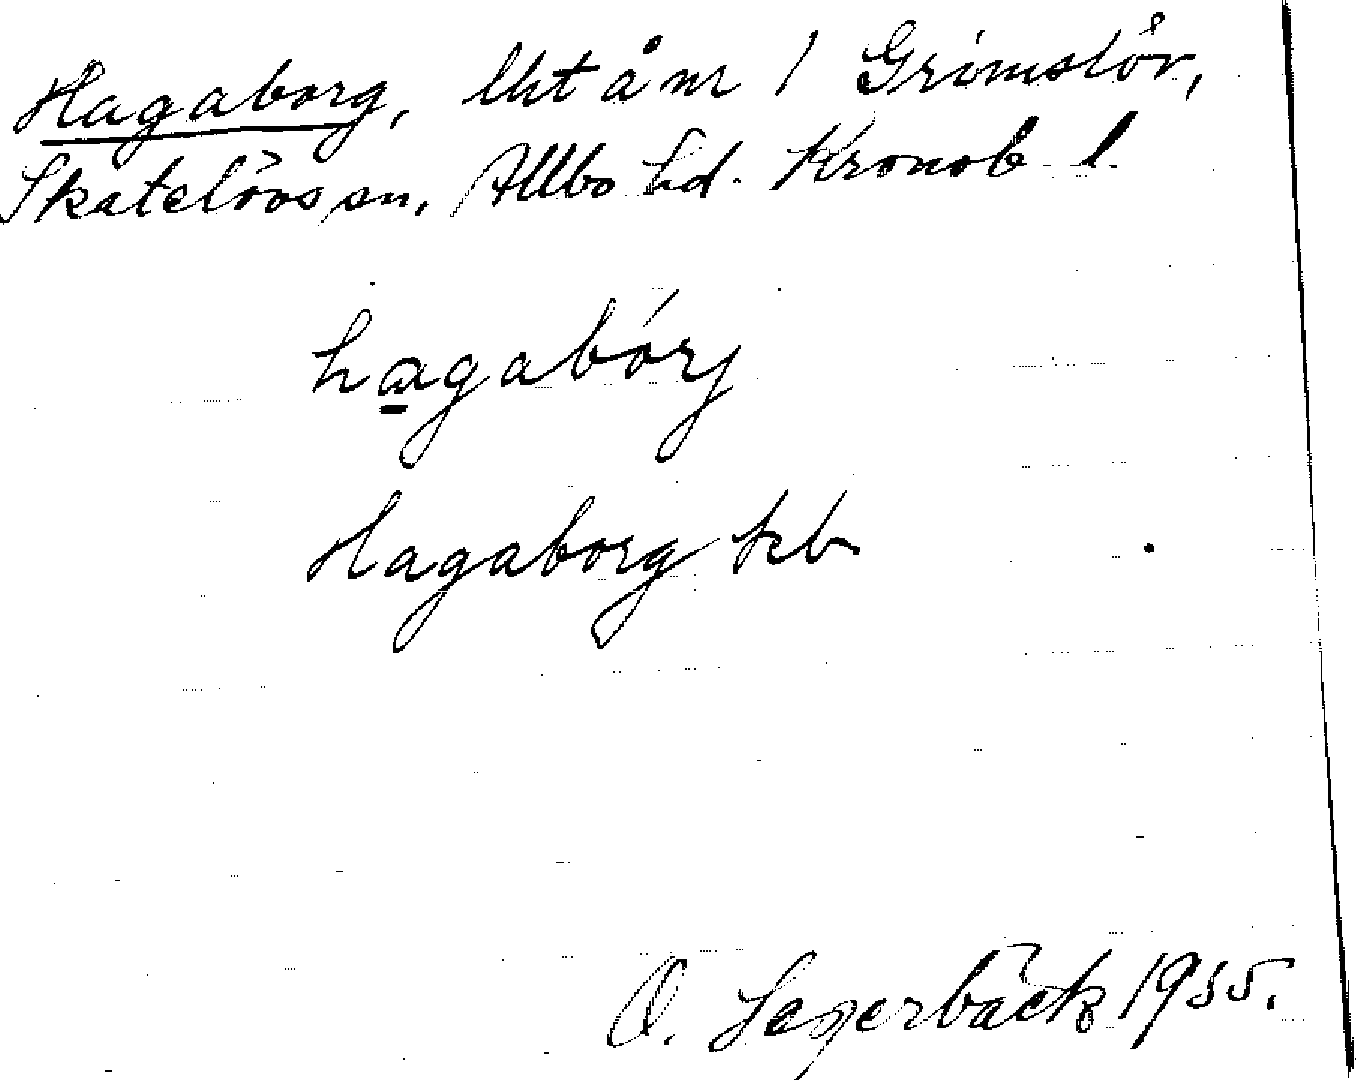 Hagaborg, lht å nr 1 Grimslöv,
Skatelövs sn, Allbo hd. Kronob l.
hagabórj
Hagaborg kb
O. Lagerbäck 1955.